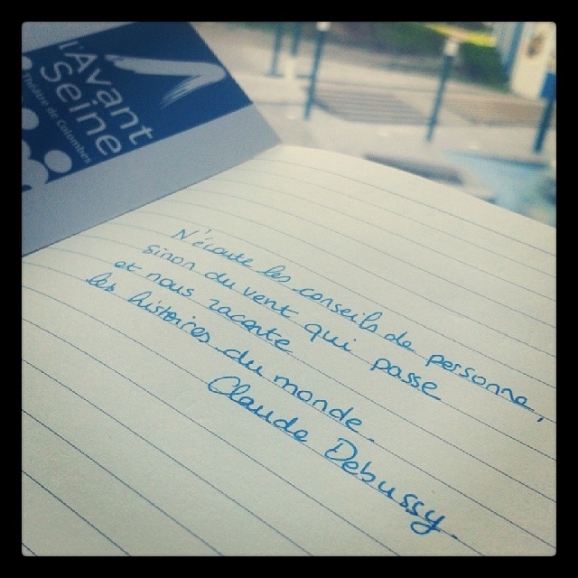 l'Avant
Seine
Théâtre de Colombes
N'écoute les conseils de personne,
sinon du vent qui passe
et nous raconte
les histoires du monde.
Claude Debussy.